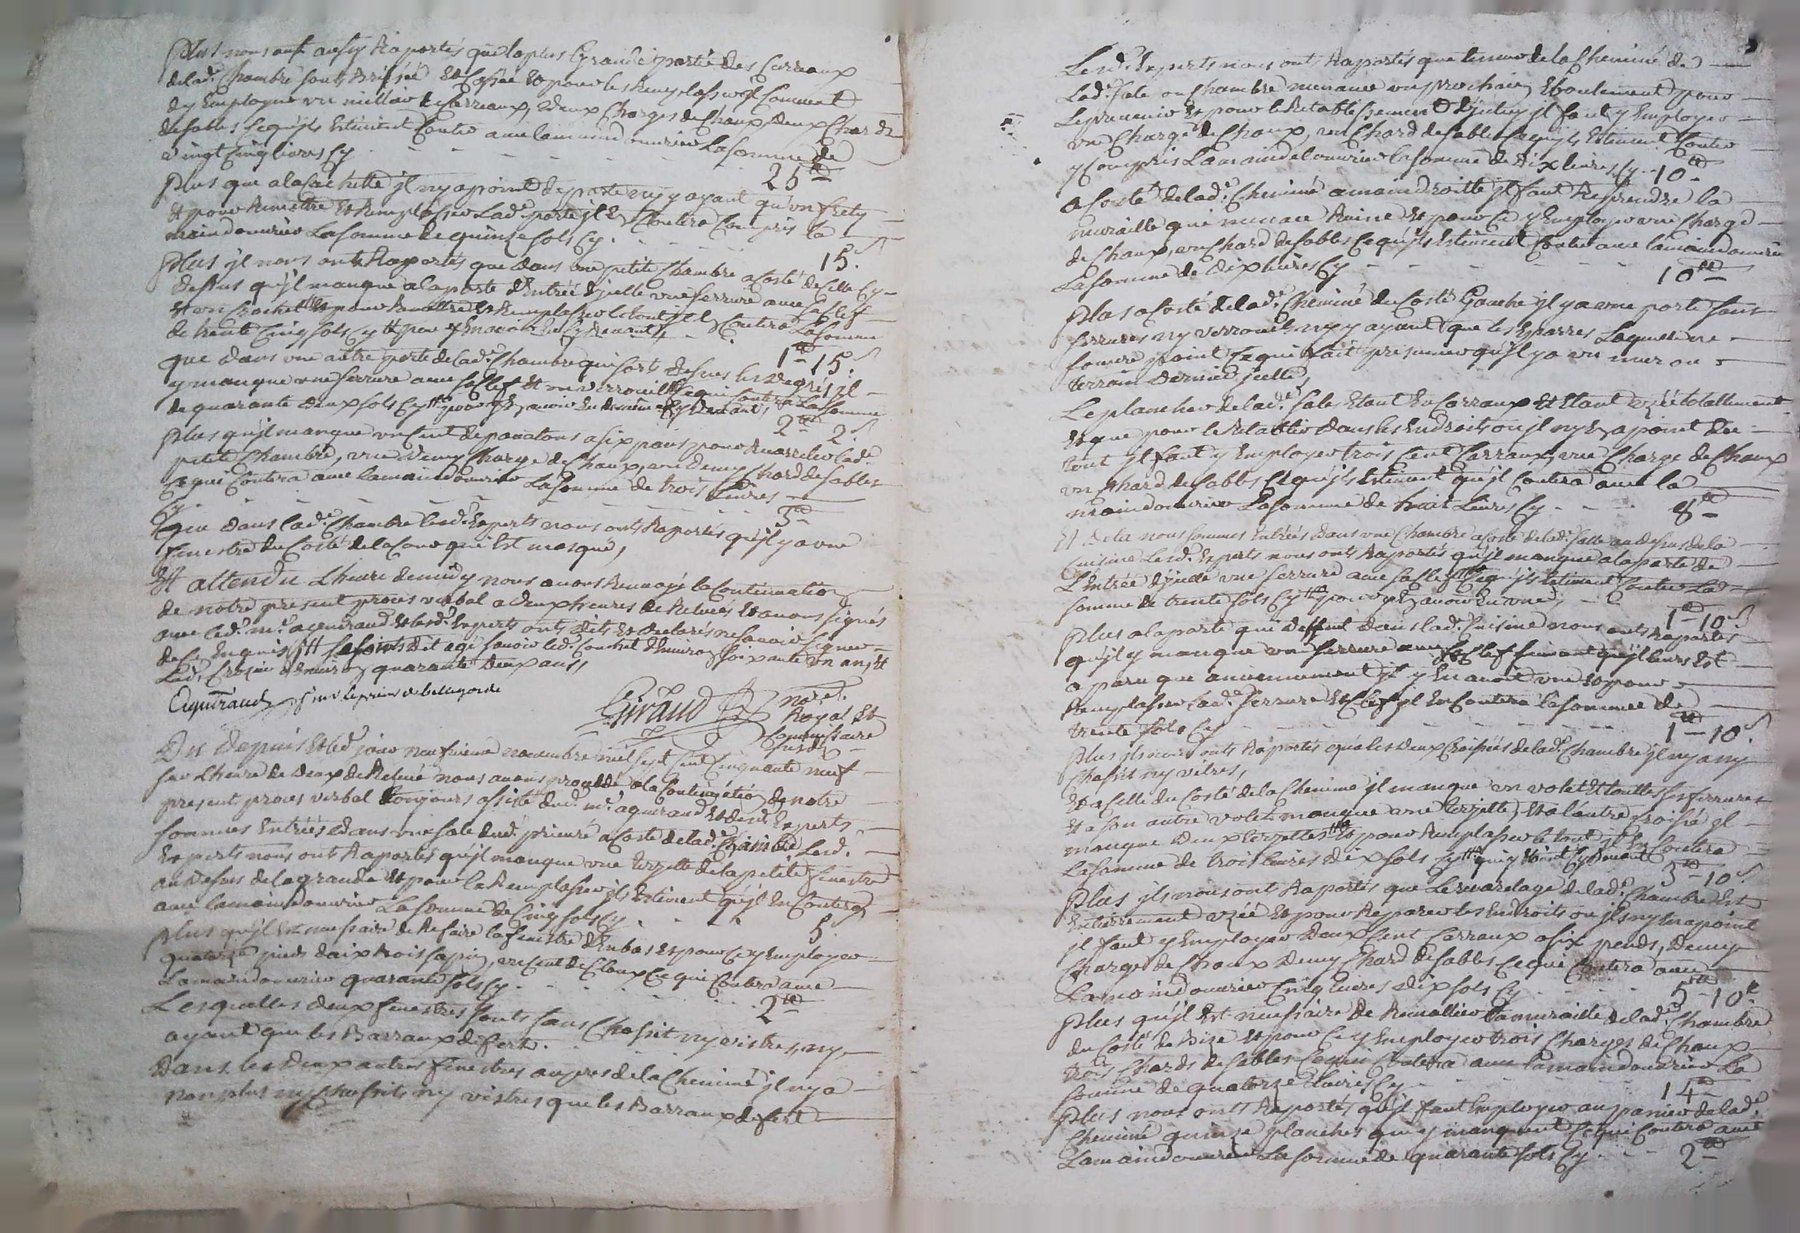 Plus nous ont aussy Raportés que la plus Grande partie des Carreaux
de lad.e Chambre sont Brisées Et Cassée Et pour les Remplasser Il Convient
dy Employer un millier de Carreaux, deux Charges de Chaux, deux Chards
de sables Ce qu'ils Estiment Couter avec la main douvrier La somme de
vingt Cinq livres Cy 25 tt
Plus que a la Cachette il ny a point de porte ny y ayant qu'un
Et pour Remettre Et Remplasser Lad.e porte il En Coutera Compris la
main douvrier La somme de quinze sols Cy 15 s.
Plus il nous ont Raportés que dans une petite Chambre a Costé de Celle Cy
dessus qu'il manque a la porte d'Entrée d'jcelle une serrure avec sa Clef
Et un Crochet Et pour Remettre Et Remplasser le tout il En Coutera La somme
de trente Cinq sols Cy 1 tt 15 s.
que dans une autre porte de lad.e Chambre qui sort dessus les degrés il
y manque une serrure avec sa Clef Et un verrouil Ce qui Coutera La somme
de quarante deux sols Cy 2 tt 2 s.
Plus qu'il manque un Cent de a six pans pour Lad.e
petite Chambre, une demy Charge de Chaux, un demy Chard de sables
Ce qui Coutera avec la main douvrier La somme de trois Livres
Cy 3 tt
Que dans lad.e Chambre lesd. Experts nous ont Raportés qu'il y a une
fenestre du Costé de la Cour qui Est masqué,
Et attendu Lheure de midy nous avons Renvoyé la Continuation
de notre present proces verbal a deux heures de Relevée Et avons signés
avec led. m.r aguiraud Et lesd. Experts ont dits Et declarés ne savoir signer
de Ce Enquis dit agé savoir led. Couchet d'Environ soixante un ans Et
Led. d'Environ quarante deux ans,
Eiguiraud sindic
Giraud no.re
Royal Et
Commissaire
susd.
Du depuis Et led. jour neufvieme novembre mil sept Cent Cinquante neuf
sur Lheure de deux de Relevée nous avons procedé a la Continuation de notre
present proces verbal toujours assisté dud. m.r aguiraud Et desd. Experts
sommes Entrées dans une sale dud. prieuré a Costé de lad. Chambre Lesd.
Experts nous ont Raportés qu'il manque une targette de la petite fenestre
au dessus de la grande Et pour la Remplasser ils Estiment qu'il En Coutera
avec la main douvrier La somme de Cinq sols Cy 5 s.
Plus qu'il Est necessaire de Refaire la fenestre d'En bas Et pour Ce y Employer
quatorze pieds daix Bois sapin, un Cent de Cloux Ce qui Coutera avec
La main douvrier quarante sols Cy 2 tt
Lesquelles deux fenestres sont sans Chassit ny vistres, ny
ayant que les Barraux de fert.
Dans les deux autres fenestres aupres de la Cheminé il ny a
non plus ny Chassits ny vistres que les Barraux de fert
Lesd. Experts nous ont Raportés que le mur de la Cheminé de
Lad.e sale ou Chambre menace un prochain Ecoulement pour
Le prevenir Et pour le Retablissement d'jceluy il faut y Employer
une Charge de Chaux, un Chard de sables Ce qu'ils Estiment Couter
y Compris La main de louvrier la somme de dix livres Cy 10 tt
a Costé de lad.e Cheminé a main droitte il faut Reprendre la
muraille qui menace Ruine Et pour Ce y Employer une Charge
de Chaux, un Chard de sables Ce qu'ils Estiment Couter avec la main douvrier
La somme de dix livres Cy 10 tt
Plus a Costé de lad.e Cheminé du Costé Gauche il y a une porte sans
serrures ny verrouils ny y ayant que les Esparres Laquelle ne
s'ouvre point Ce qui fait presumer qu'il y a un mur ou
terrain derrier jcelle,
Le plancher de lad.e sale Etant En Carraux Et Etant usé totallement
Et que pour le Retablir dans les Endroits ou il ny En a point du
tout il faut y Employer trois Cent Carraux, une Charge de Chaux
un Chard de sables Ce qu'ils Estiment qu'il Coutera avec la
main douvrier La somme de huit Livres Cy 8 tt
Et de la nous sommes Entrées dans une Chambre a Costé de lad. salle au dessus de la
Cuisine Lesd. Experts nous ont Raportés qu'il manque a la porte de
L'Entrée d'jcelle une serrure avec sa Clef Ce qu'ils Estiment Couter La
somme de trente sols Cy 1 tt 10 s.
Plus a la porte qui dessent dans lad. Cuisine nous ont Raportés
qu'il y manque une serrure avec sa Clef suivant qu'il leurs Est
aparu que anciennement il y En avoit une Et pour
Remplasser Lad.e serrure Et Clef il En Coutera la somme de
trente sols Cy 1 tt 10 s.
Plus ils nous ont Raportés que les deux Croisées de lad. Chambre il ny a ny
Chassis ny vitres,
Et a Celle du Costé de la Cheminé il manque un volet Et touttes ses ferrures
Et a son autre volet manque une targette, Et a lautre Croisée il
manque deux targettes Et pour Remplasser le tout il En Coutera
La somme de trois livres dix sols Cy 3 tt 10 s.
Plus ils nous ont Raportés que Le de lad.e Chambre Est
Entierement usée Et pour Reparer les Endroits ou il ny En a point
il faut y Employer deux Cent Carraux a six pends, demy
Charge de Chaux demy Chard de sables Ce qui Coutera avec
La main douvrier Cinq livres dix sols Cy 5 tt 10 s.
Plus qu'il Est necessaire de la muraille de lad. Chambre
du Costé de Bize Et pour Ce y Employer trois Charges de Chaux
trois Chards de sables Ce qui Coutera avec La main douvrier La
somme de quatorze Livres Cy 14 tt
Plus nous ont Raportés qu'il faut Employer au panier de lad.e
Cheminé quinze planches qui y manquent Ce qui Coutera avec
La main douvrier La somme de quarante sols Cy 2 tt